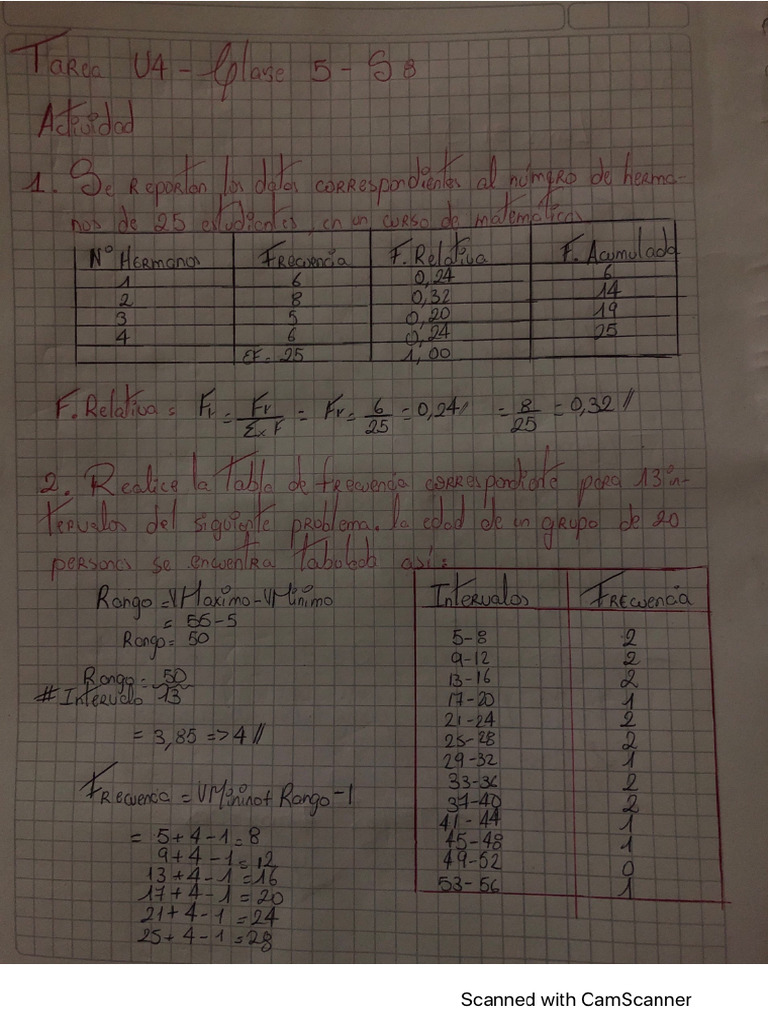 Tarea U4 - Clase 5 - S8
Actividad
1. Se reportan los datos correspondientes al número de herma-
nos de 25 estudiantes, en un curso de matemáticas
Nº Hermanos Frecuencia F. Relativa F. Acumulada
1 6 0,24 6
2 8 0,32 14
3 5 0,20 19
4 6 0,24 25
EF = 25 1,00
F. Relativa = Fr = Fr/ΣxF = Fr = 6/25 = 0,24// = 8/25 = 0,32//
2. Realice la tabla de frecuencia correspondiente para 13 in-
tervalos del siguiente problema. La edad de un grupo de 20
personas se encuentra tabulada así:
Rango = VMaximo - VMinimo
= 55 - 5
Rango = 50
Rango = 50
# Intervalo 13
= 3,85 => 4//
Frecuencia = VMinino + Rango - 1
= 5 + 4 - 1 = 8
9 + 4 - 1 = 12
13 + 4 - 1 = 16
17 + 4 - 1 = 20
21 + 4 - 1 = 24
25 + 4 - 1 = 28
Intervalos Frecuencia
5-8 2
9-12 2
13-16 2
17-20 1
21-24 2
25-28 2
29-32 1
33-36 2
37-40 2
41-44 1
45-48 1
49-52 0
53-56 1
Scanned with CamScanner